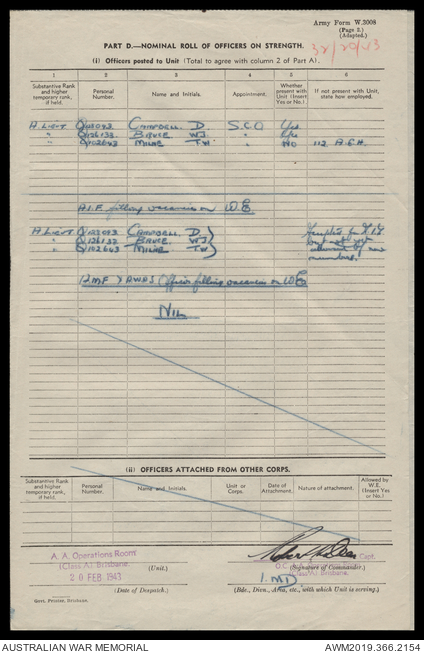 Army Form W.3008
(Page 3.)
(Adapted.)
PART D.—NOMINAL ROLL OF OFFICERS ON STRENGTH.
(i) Officers posted to Unit (Total to agree with column 2 of Part A).
1 2 3 4 5 6
Substantive Rank and higher temporary rank, if held. Personal Number. Name and Initials. Appointment. Whether present with Unit (Insert Yes or No.) If not present with Unit, state how employed.
A. Lieut CAMPBELL. D S.C.O Yes
" BRUCE WJ. " Yes
" MILNE T.W " No 112 A.G.H.
A.I.F. filling vacancies on W.E.
A Lieut CAMPBELL. D
" BRUCE. WJ
" MILNE TW
but not yet
numbers.
AWAS Officer filling vacancies on WE
NIL
(ii) OFFICERS ATTACHED FROM OTHER CORPS.
Substantive Rank and higher temporary rank, if held. Personal Number. Name and Initials. Unit or Corps. Date of Attachment. Nature of attachment. Allowed by W.E. (Insert Yes or No.)
A. A. Operations Room
(Class A) Brisbane.
(Unit.)
20 FEB 1943
(Date of Despatch.)
Capt.
(Signature of Commander.)
(Class A) Brisbane.
1. MD
(Bde., Divn., Area, etc., with which Unit is serving.)
Govt. Printer, Brisbane.
AUSTRALIAN WAR MEMORIAL
AWM2019.366.2154